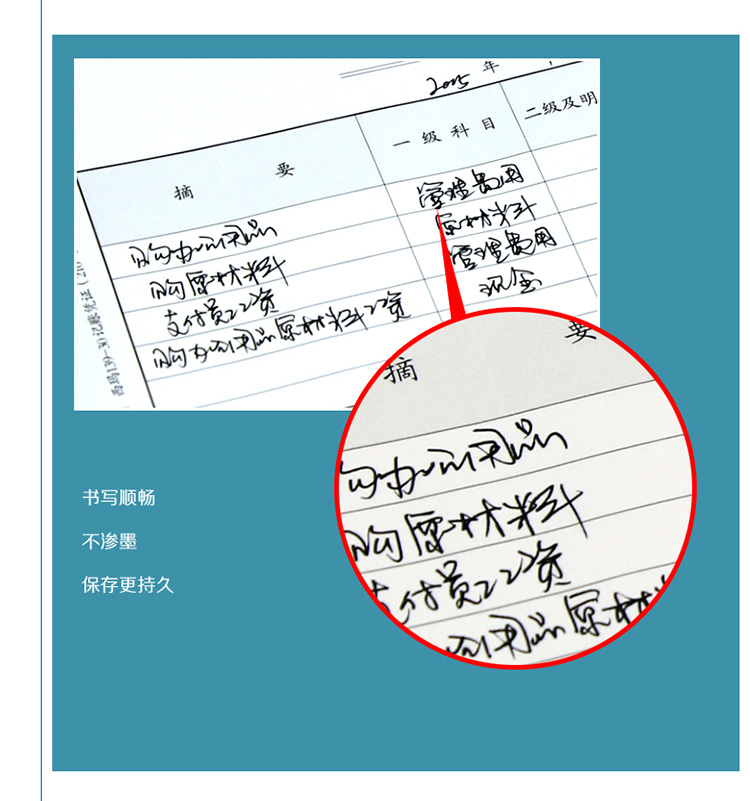 2005 年
摘 要 一级科目 二级及明
购办公用品 管理费用
购原材料 原材料
支付员工工资 管理费用
购办公用品原材料工资 现金
摘 要
购办公用品
购原材料
支付员工工资
公用品原材料
书写顺畅
不渗墨
保存更持久